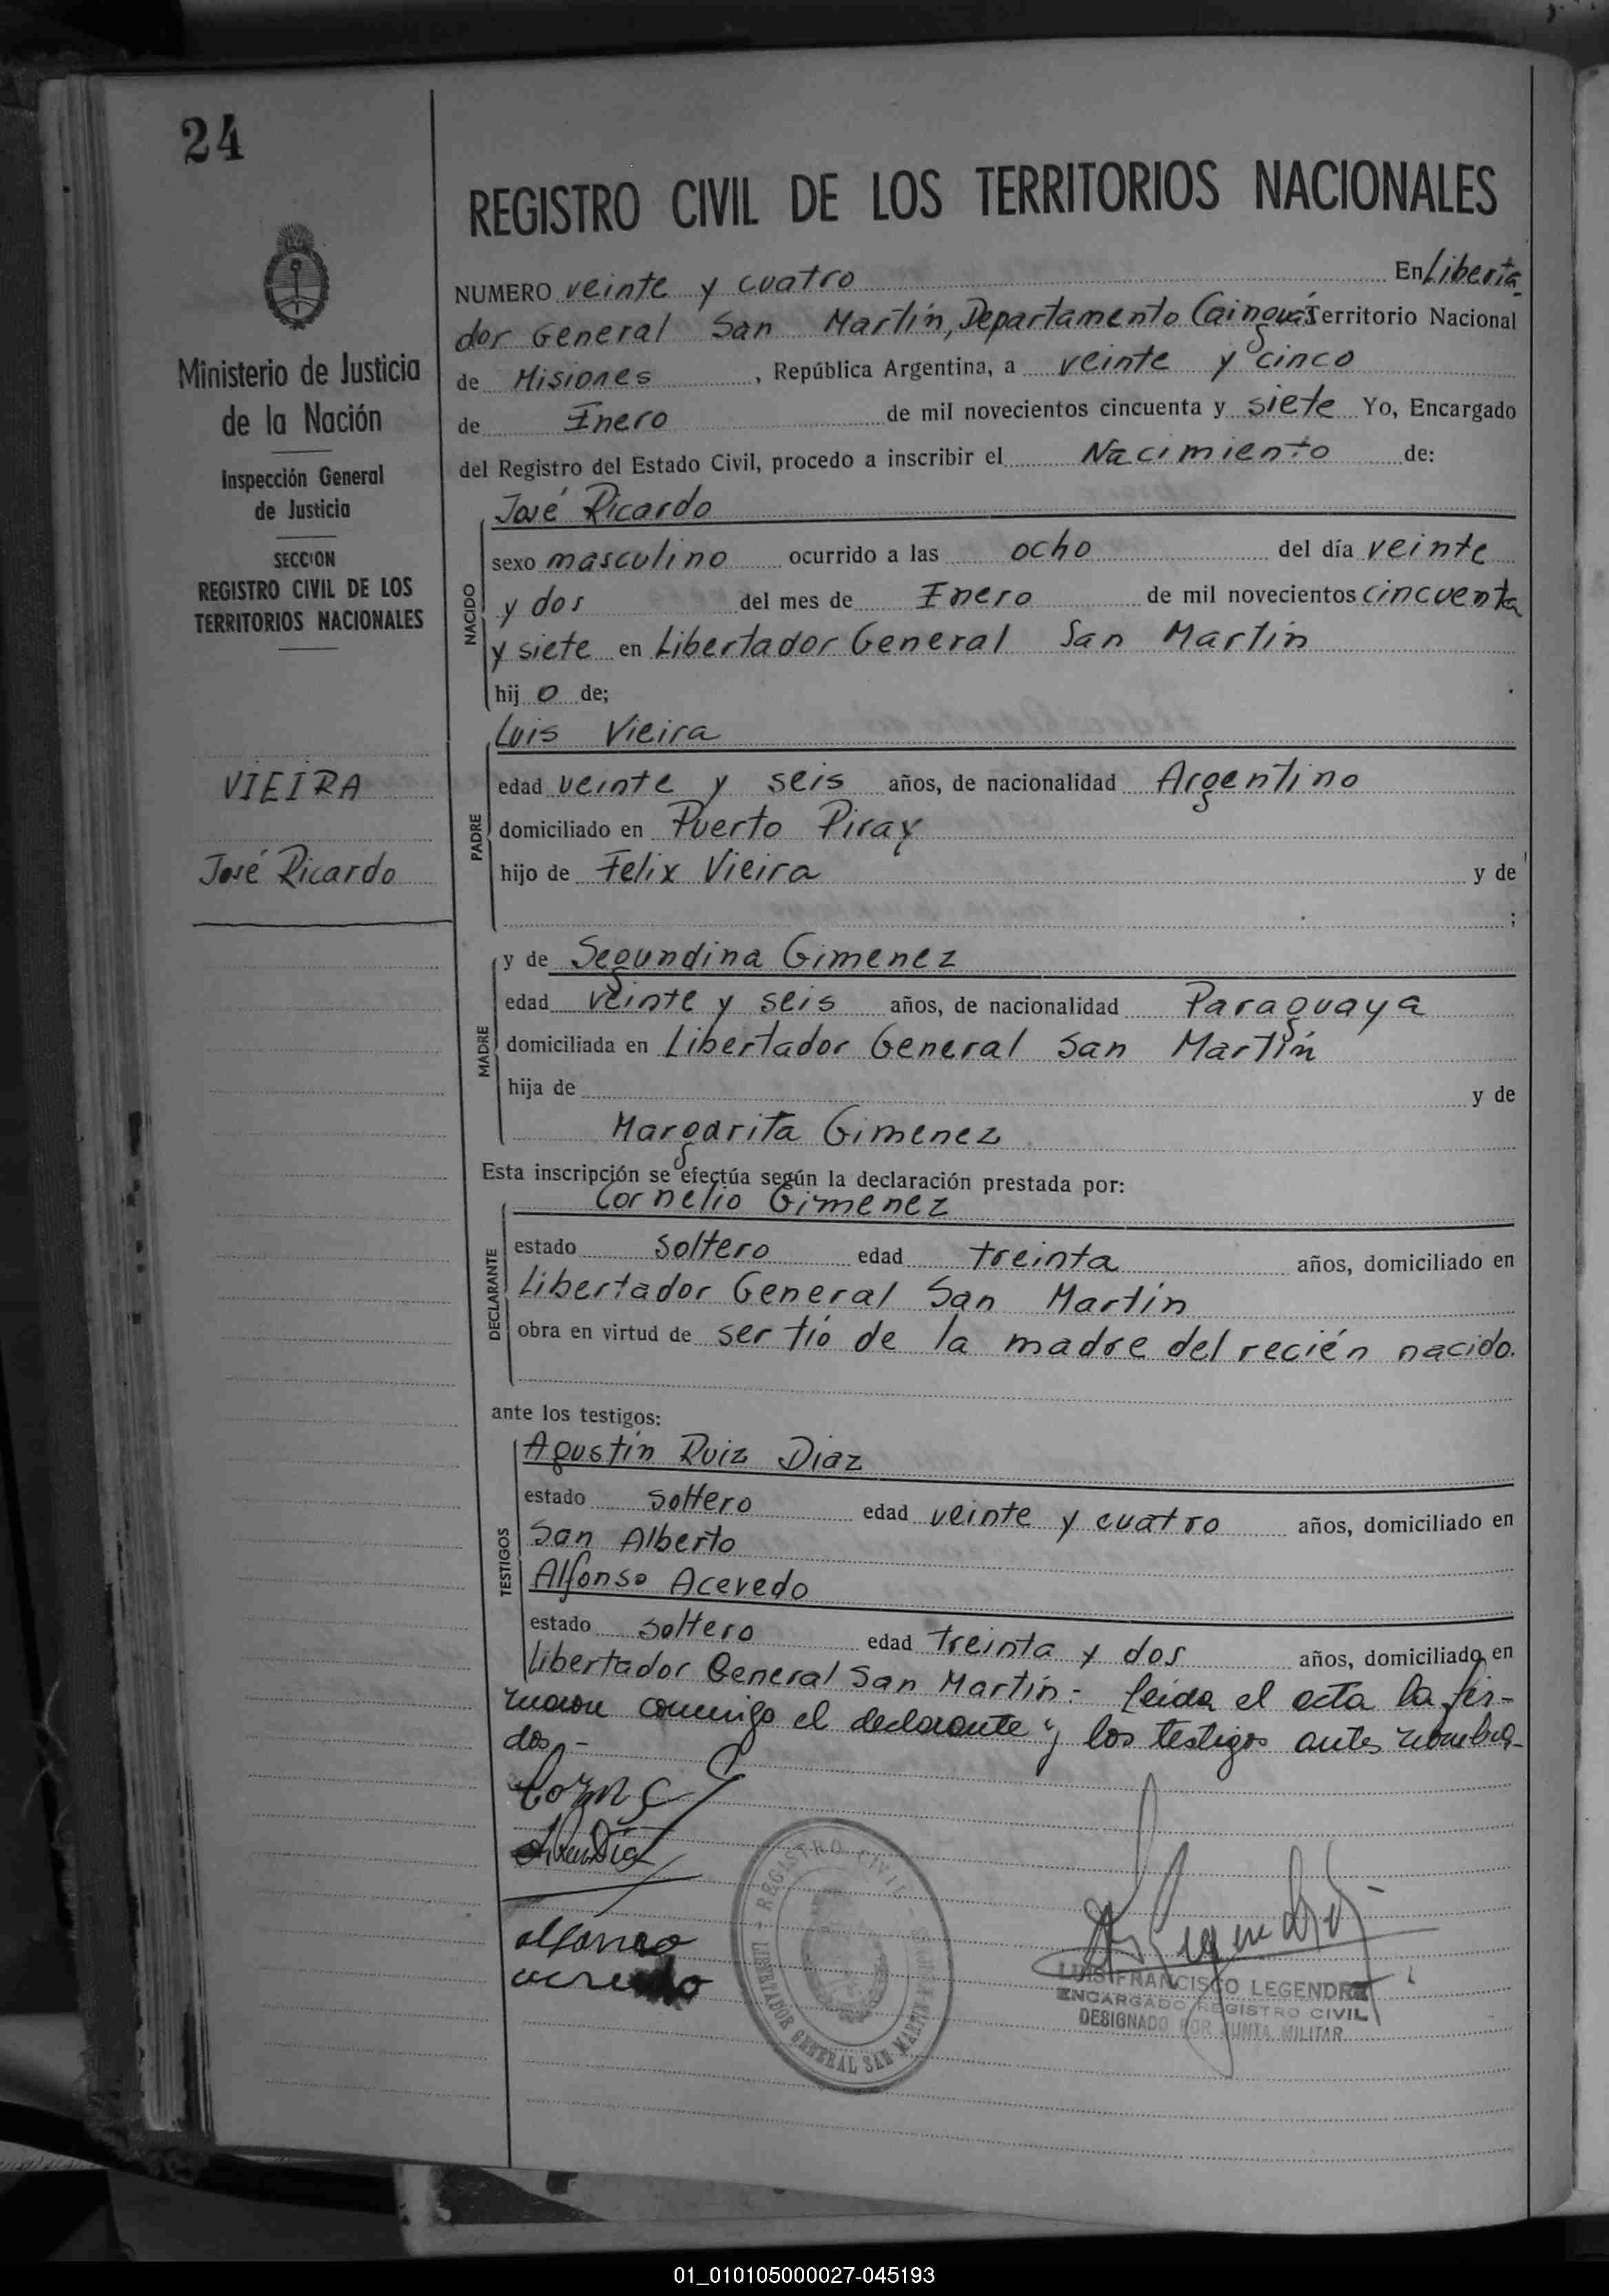 24
REGISTRO CIVIL DE LOS TERRITORIOS NACIONALES
Ministerio de Justicia
de la Nación
Inspección General
de Justicia
SECCION
REGISTRO CIVIL DE LOS
TERRITORIOS NACIONALES
VIEIRA
José Ricardo
NUMERO veinte y cuatro En Liberta
dor General San Martín, Departamento Cainguás Territorio Nacional
de Misiones, República Argentina, a veinte y cinco
de Enero de mil novecientos cincuenta y siete Yo, Encargado
del Registro del Estado Civil, procedo a inscribir el Nacimiento de:
NACIDO
José Ricardo
sexo masculino ocurrido a las ocho del día veinte
y dos del mes de Enero de mil novecientos cincuenta
y siete en Libertador General San Martín
hij o de;
PADRE
Luis Vieira
edad veinte y seis años, de nacionalidad Argentino
domiciliado en Puerto Piray
hijo de Felix Vieira y de
;
MADRE
y de Segundina Gimenez
edad veinte y seis años, de nacionalidad Paraguaya
domiciliada en Libertador General San Martín
hija de y de
Margarita Gimenez
Esta inscripción se efectúa según la declaración prestada por:
DECLARANTE
Cornelio Gimenez
estado soltero edad treinta años, domiciliado en
Libertador General San Martín
obra en virtud de ser tío de la madre del recién nacido.
ante los testigos:
TESTIGOS
Agustín Ruiz Diaz
estado soltero edad veinte y cuatro años, domiciliado en
San Alberto
Alfonso Acevedo
estado soltero edad treinta y dos años, domiciliado en
Libertador General San Martín.- Leída el acta la fir-
maron conmigo el declarante y los testigos antes nombra-
dos.-
alfonso
REGISTRO CIVIL
LIBERTADOR GENERAL SAN MARTIN
LUIS FRANCISCO LEGENDRE
ENCARGADO REGISTRO CIVIL
DESIGNADO POR JUNTA MILITAR
01_010105000027-045193